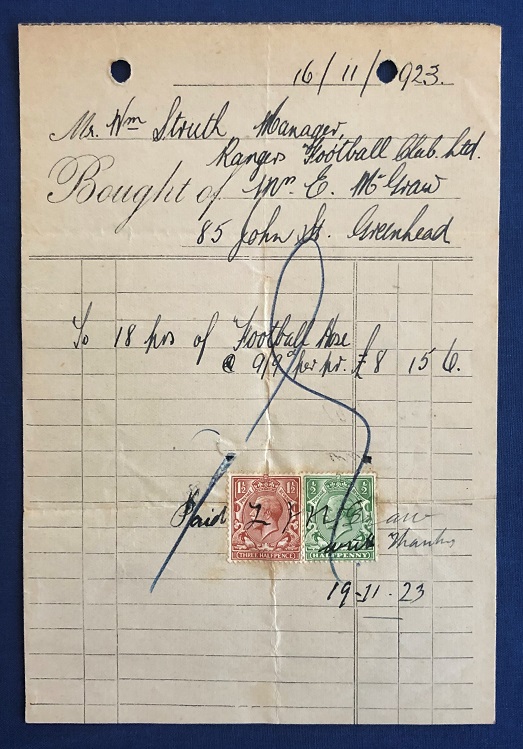 16/11/1923.
Mr. Wm Struth Manager,
Rangers Football Club. Ltd.
Bought of Mr. E. McGraw
85 John St. Greenhead
To 18 prs of Football Hose
@ 9/9d per pr. £8 15 6.
1½ 1½ ½ ½
Paid
with Thanks
THREE HALFPENCE HALFPENNY
19-11-23